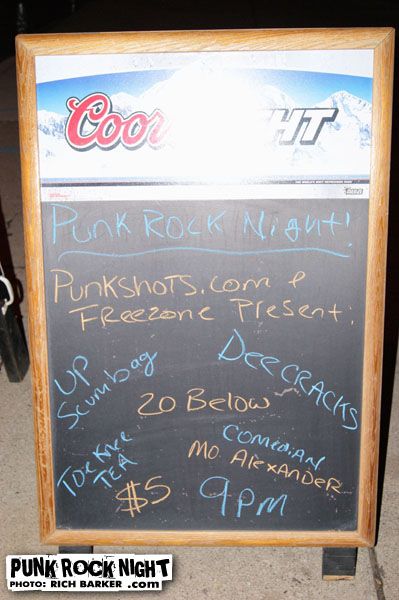 Coors LIGHT
Punk Rock Night!
PunkShots.com &
Freezone Present:
UP
Scumbag
DeeCRACKS
20 Below
Toe Knee
TEA
Comedian
Mo Alexander
$5
9pm
PUNK ROCK NIGHT
PHOTO: RICH BARKER .com